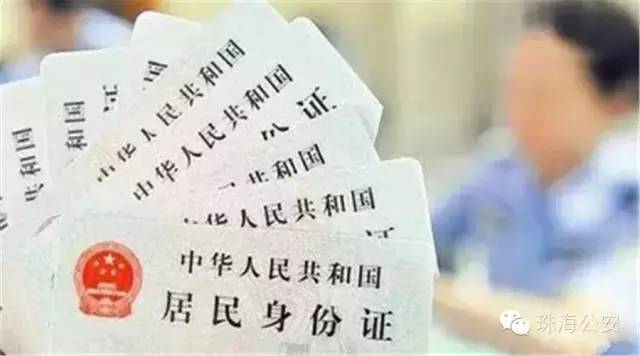 中华人民共和国
中华人民共和国
中华人民共和国
份证
中华人民共和国
中华人民共和国
证
中华人民共和国
居民身份证
珠海公安